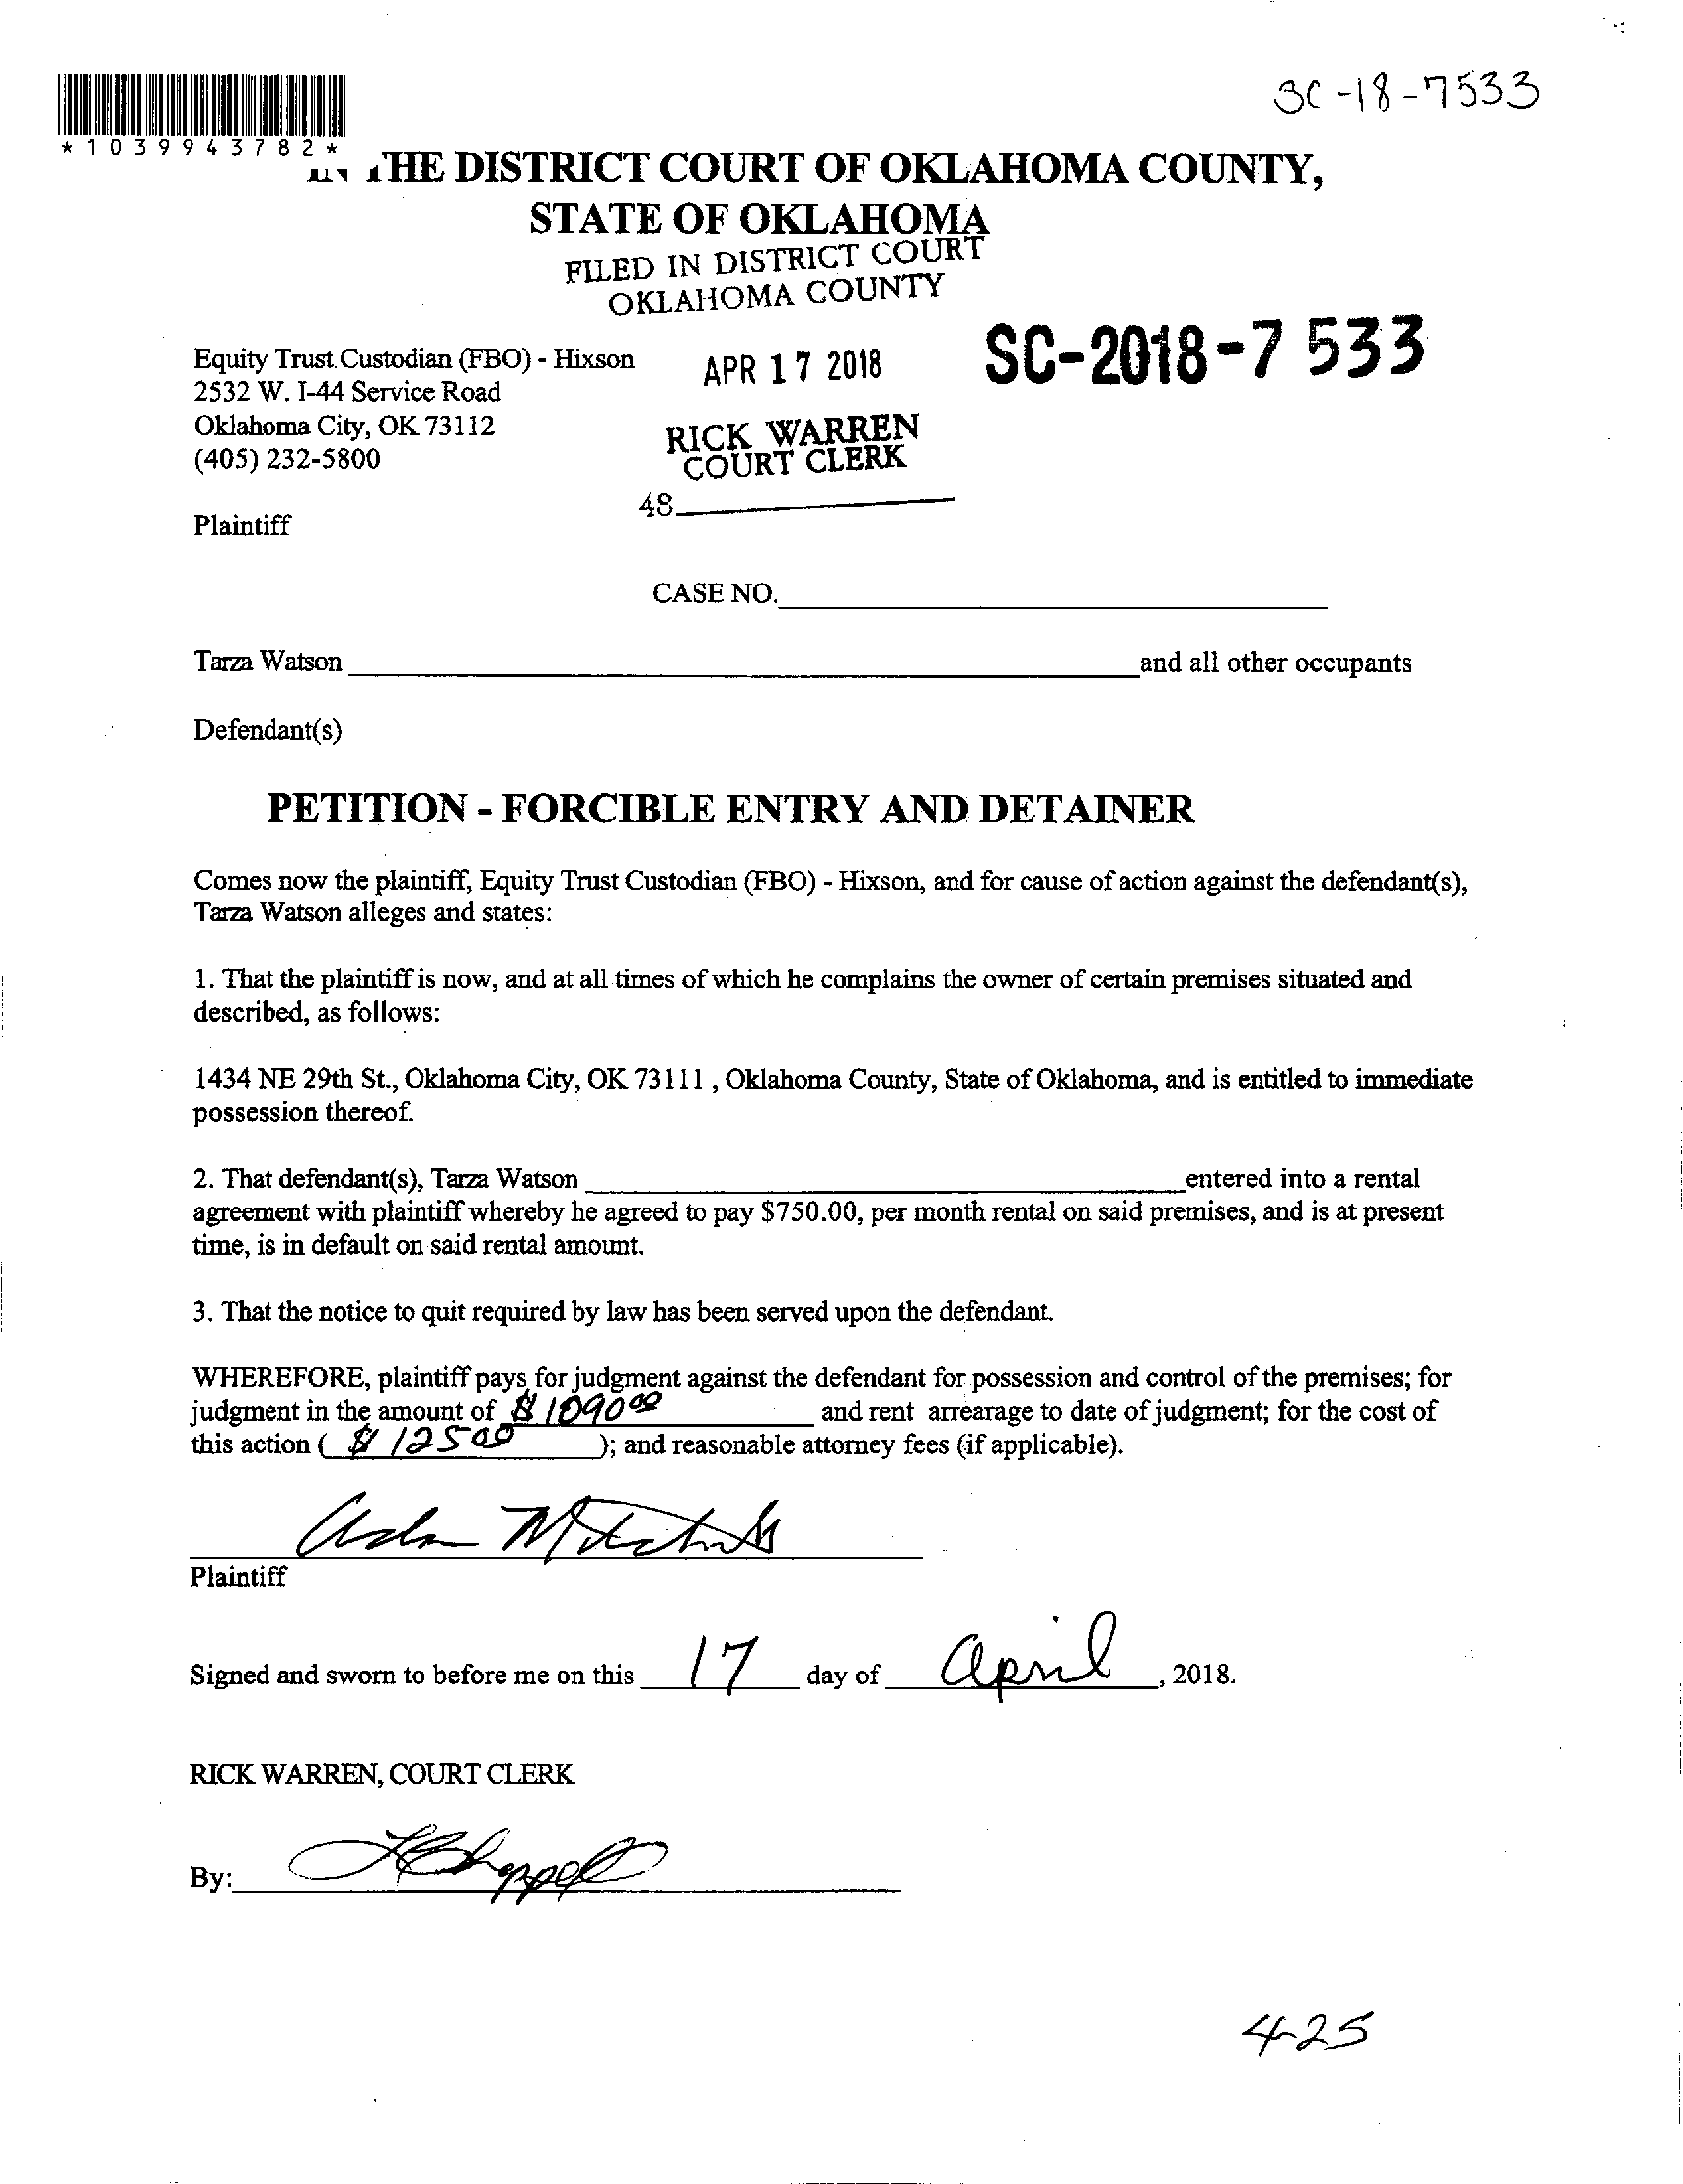 SC-18-7533
*1039943782*
THE DISTRICT COURT OF OKLAHOMA COUNTY,
STATE OF OKLAHOMA
FILED IN DISTRICT COURT
OKLAHOMA COUNTY
Equity Trust Custodian (FBO) - Hixson
APR 17 2018
SC-2018-7533
2532 W. I-44 Service Road
Oklahoma City, OK 73112
RICK WARREN
(405) 232-5800
COURT CLERK
48
Plaintiff
CASE NO.
Tarza Watson and all other occupants
Defendant(s)
PETITION - FORCIBLE ENTRY AND DETAINER
Comes now the plaintiff, Equity Trust Custodian (FBO) - Hixson, and for cause of action against the defendant(s),
Tarza Watson alleges and states:
1. That the plaintiff is now, and at all times of which he complains the owner of certain premises situated and
described, as follows:
1434 NE 29th St., Oklahoma City, OK 73111 , Oklahoma County, State of Oklahoma, and is entitled to immediate
possession thereof.
2. That defendant(s), Tarza Watson entered into a rental
agreement with plaintiff whereby he agreed to pay $750.00, per month rental on said premises, and is at present
time, is in default on said rental amount.
3. That the notice to quit required by law has been served upon the defendant.
WHEREFORE, plaintiff pays for judgment against the defendant for possession and control of the premises; for
judgment in the amount of $1090 00 and rent arrearage to date of judgment; for the cost of
this action ( $125 00 ); and reasonable attorney fees (if applicable).
Plaintiff
Signed and sworn to before me on this 17 day of April, 2018.
RICK WARREN, COURT CLERK
By:
4-25